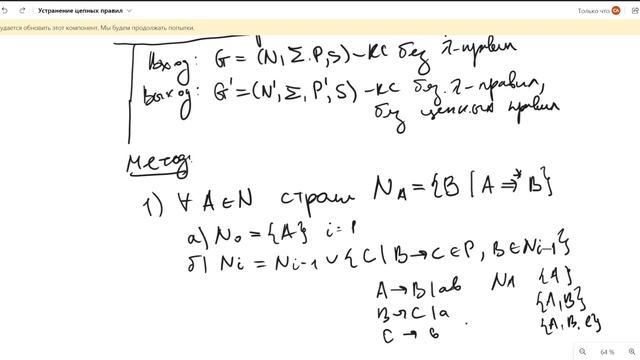 Устранение цепных правил
Только что
удается обновить этот компонент. Мы будем продолжать попытки.
Вход: G = (N, Σ, P, S) – КС без λ-правил
Выход: G' = (N', Σ, P', S) – КС без λ-правил,
без цепных правил
Метод:
1) ∀ A ∈ N строим N_A = {B | A ⇒* B}
а) N₀ = {A} i = 1
б) Nᵢ = Nᵢ₋₁ ∪ {C | B → C ∈ P, B ∈ Nᵢ₋₁}
A → B | ab N_A {A}
B → C | a {A, B}
C → b {A, B, C}
64 %